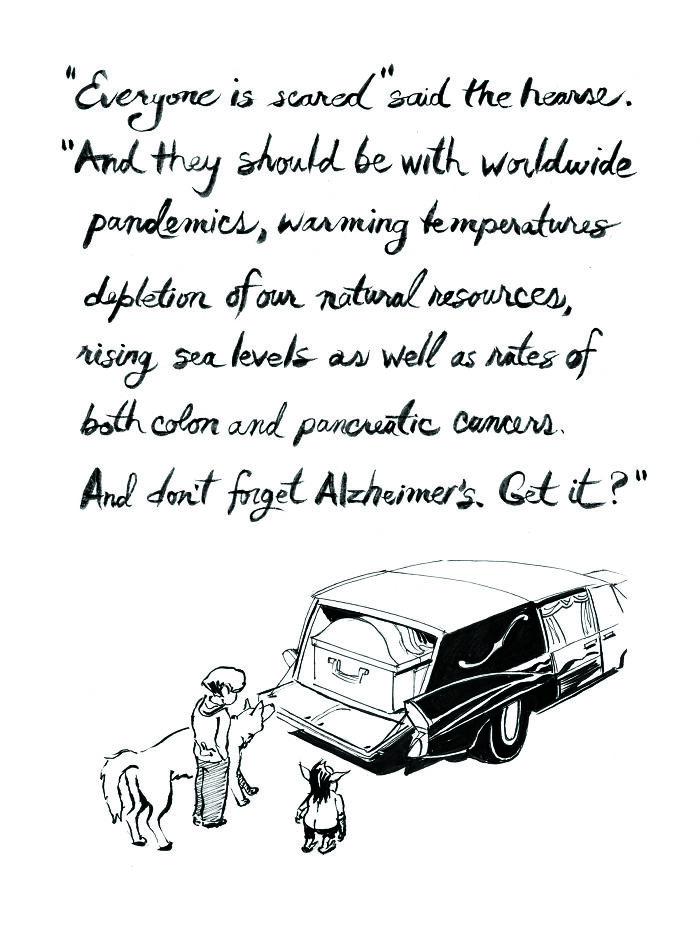 "Everyone is scared" said the hearse.
"And they should be with worldwide
pandemics, warming temperatures
depletion of our natural resources,
rising sea levels as well as rates of
both colon and pancreatic cancers.
And don't forget Alzheimer's. Get it?"